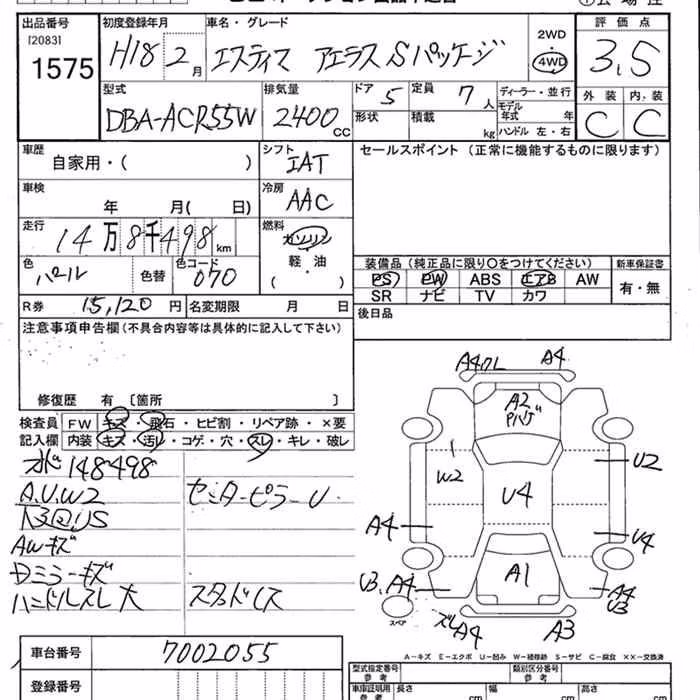 出品番号 初度登録年月 車名・グレード 2WD 評価点
[2083] 1575 H18 2月 エスティマ アエラスSパッケージ 4WD 3.5
型式 排気量 ドア 定員 ディーラー・並行 外装 内装
DBA-ACR55W 2400CC 5 7人 モデル年式 年 C C
形状 積載 kg ハンドル 左・右
車歴 シフト セールスポイント (正常に機能するものに限ります)
自家用・( ) IAT
車検 冷房
年 月( 日) AAC
走行 燃料
14万8千498km ガソリン
色 色コード 軽・油 装備品(純正品に限り○をつけてください) 新車保証書
パール 色替 070 ( ) PS PW ABS エアB AW 有・無
SR ナビ TV カワ
R券 15,120円 名変期限 月 日 後日品
注意事項申告欄(不具合内容等は具体的に記入して下さい)
修復歴 有 〔箇所 〕
検査員 FW キズ・飛石・ヒビ割・リペア跡・×要
記入欄 内装 キズ・汚レ・コゲ・穴・スレ・キレ・破レ
148498
A.U.W2 センターピラーU
AWキズ
Dミラーキズ
ハンドルスレ大
A4 A4
A2
W2 U2
U4
A4 U4
A1
U3.A4 A4 U3
スペア ズレ A4 A3
A-キズ E-エクボ U-凹み W-補修跡 S-サビ C-腐食 ××-交換済
車台番号 7002055
登録番号
型式指定番号 参考 類別区分番号 参考
車庫証明用 参考 長さ cm 幅 cm 高さ cm